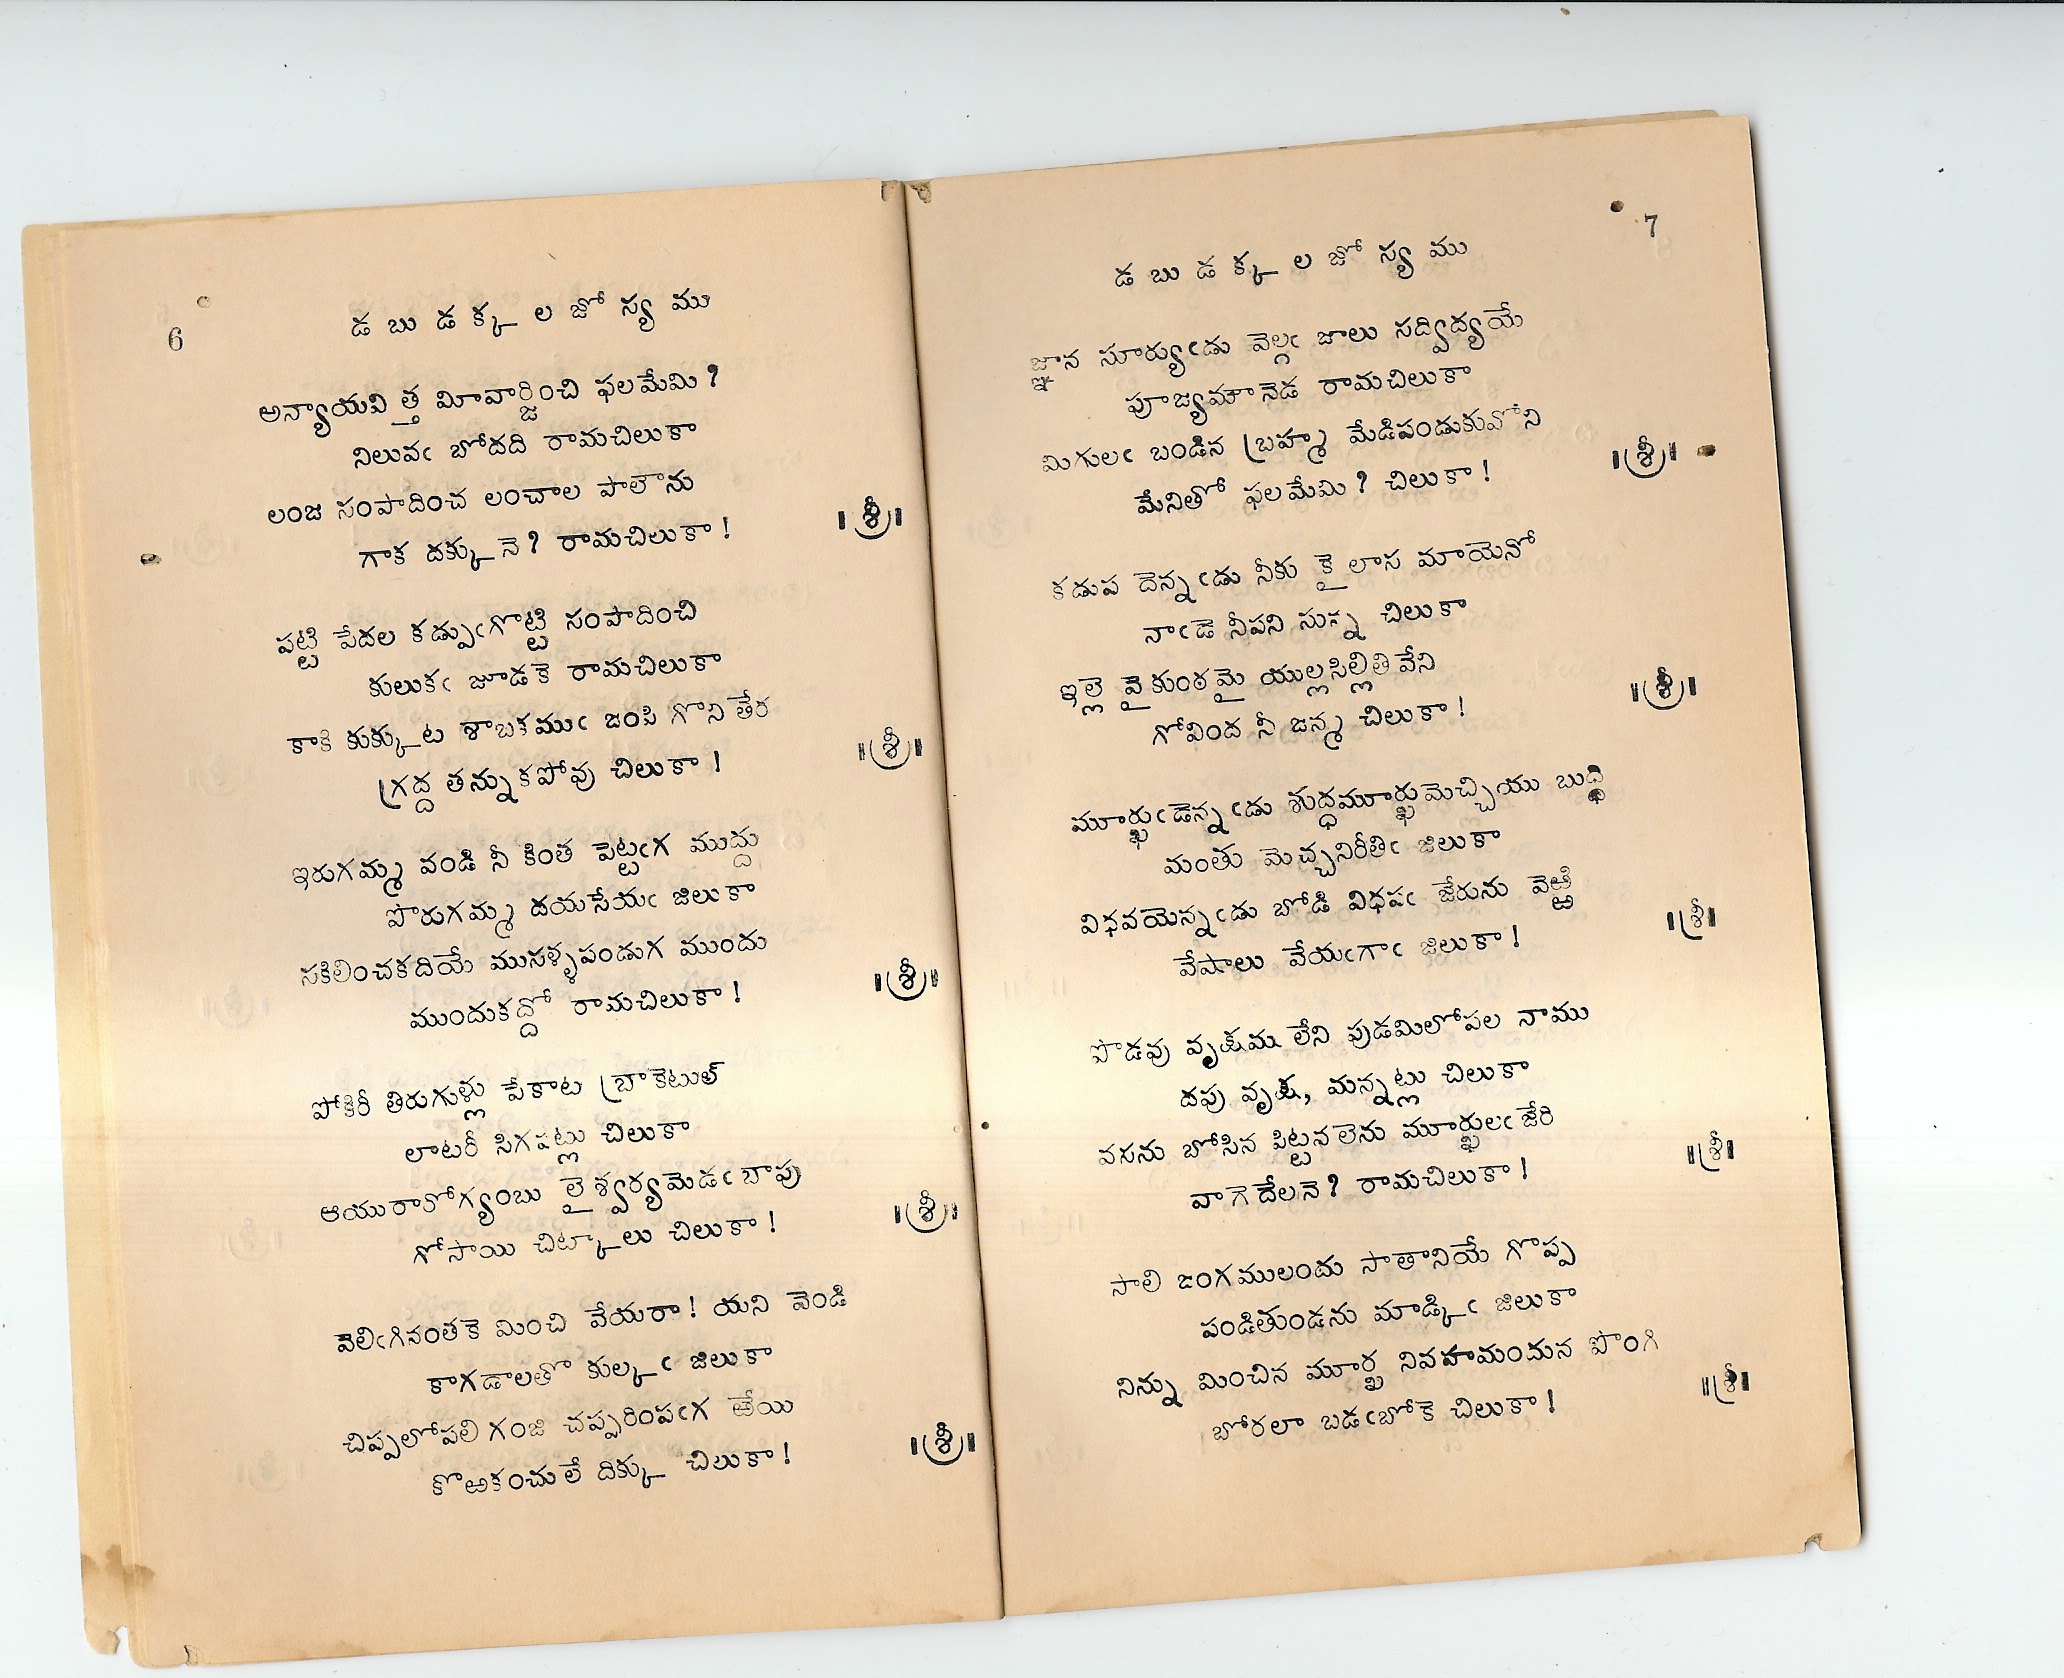 6
డ బు డ క్క ల జో స్య ము
అన్యాయవి త్త మీవార్జించి ఫలమేమి ?
నిలువఁ బోదది రామచిలుకా
లంజ సంపాదించ లంచాల పాలౌను
గాక దక్కునె ? రామచిలుకా !
॥ శ్రీ ॥
పట్టి పేదల కడ్పుఁగొట్టి సంపాదించి
కులుకఁ జూడకె రామచిలుకా
కాకి కుక్కుట శాబకముఁ జంపి గొని తేర
గ్రద్ద తన్నుకపోవు చిలుకా !
॥ శ్రీ ॥
ఇరుగమ్మ వండి నీ కింత పెట్టఁగ ముద్దు
పొరుగమ్మ దయసేయఁ జిలుకా
సకిలించకదియే ముసళ్ళపండుగ ముందు
ముందుకద్దో రామచిలుకా !
॥ శ్రీ ॥
పోకిరీ తిరుగుళ్లు పేకాట బ్రాకెటుల్
లాటరీ సిగపట్లు చిలుకా
ఆయురారోగ్యంబు లైశ్వర్యమెడఁ బాపు
గోసాయి చిట్కాలు చిలుకా !
॥ శ్రీ ॥
వెలిఁగినంతకె మించి వేయరా ! యని వెండి
కాగడాలతో కుల్కఁ జిలుకా
చిప్పలోపలి గంజి చప్పరింపఁగ ఱేయి
కొఱకంచులే దిక్కు చిలుకా !
॥ శ్రీ ॥
7
డ బు డ క్క ల జో స్య ము
జ్ఞాన సూర్యుఁడు వెల్గఁ జాలు సద్విద్యయే
పూజ్యమౌనెడ రామచిలుకా
మిగులఁ బండిన బ్రహ్మ మేడిపండుకువోని
మేనితో ఫలమేమి ? చిలుకా !
॥ శ్రీ ॥
కడుప దెన్నఁడు నీకు కైలాస మాయెనో
నాఁడె నీపని సున్న చిలుకా
ఇల్లె వైకుంఠమై యుల్లసిల్లితివేని
గోవింద నీ జన్మ చిలుకా !
॥ శ్రీ ॥
మూర్ఖుఁడెన్నఁడు శుద్ధమూర్ఖుమెచ్చియు బుద్ధి
మంతు మెచ్చనిరీతిఁ జిలుకా
విధవయెన్నఁడు బోడి విధపఁ జేరును వెఱ్ఱి
వేషాలు వేయఁగాఁ జిలుకా !
॥ శ్రీ ॥
పొడవు వృక్షము లేని పుడమిలోపల నాము
దపు వృక్ష, మన్నట్లు చిలుకా
వసను బోసిన పిట్టనలెను మూర్ఖులఁ జేరి
వాగెదేలనె ? రామచిలుకా !
॥ శ్రీ ॥
సాలి జంగములందు సాతానియే గొప్ప
పండితుండను మాడ్కిఁ జిలుకా
నిన్ను మించిన మూర్ఖ నివహమందున పొంగి
బోరలా బడఁబోకె చిలుకా !
॥ శ్రీ ॥